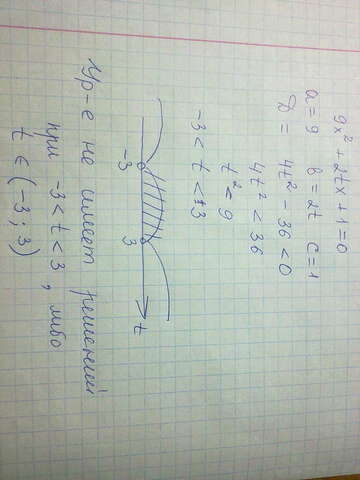 9x² + 2tx + 1 = 0
a = 9 b = 2t c = 1
D = 4t² - 36 < 0
4t² < 36
t² < 9
-3 < t < 13
-3 3 t
Ур-е не имеет решений
при -3 < t < 3, либо
t ∈ (-3; 3)